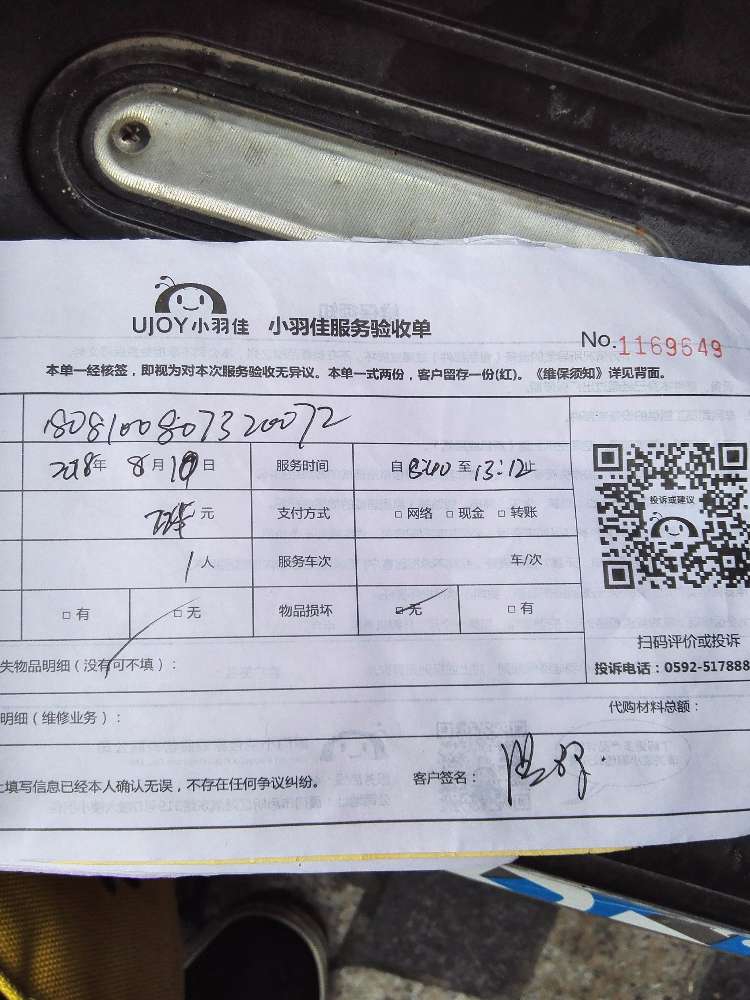 UJOY小羽佳 小羽佳服务验收单
No.1169649
本单一经核签，即视为对本次服务验收无异议。本单一式两份，客户留存一份(红)。《维保须知》详见背面。
1808100807320072
2018年 8月10日 服务时间 自8:00至13:12止
元 支付方式 □ 网络 □ 现金 □ 转账
投诉或建议
1人 服务车次 车/次
□ 有 □ 无 物品损坏 □ 无 □ 有
扫码评价或投诉
失物品明细（没有可不填）：
投诉电话：0592-517888
明细（维修业务）： 代购材料总额：
填写信息已经本人确认无误，不存在任何争议纠纷。 客户签名：